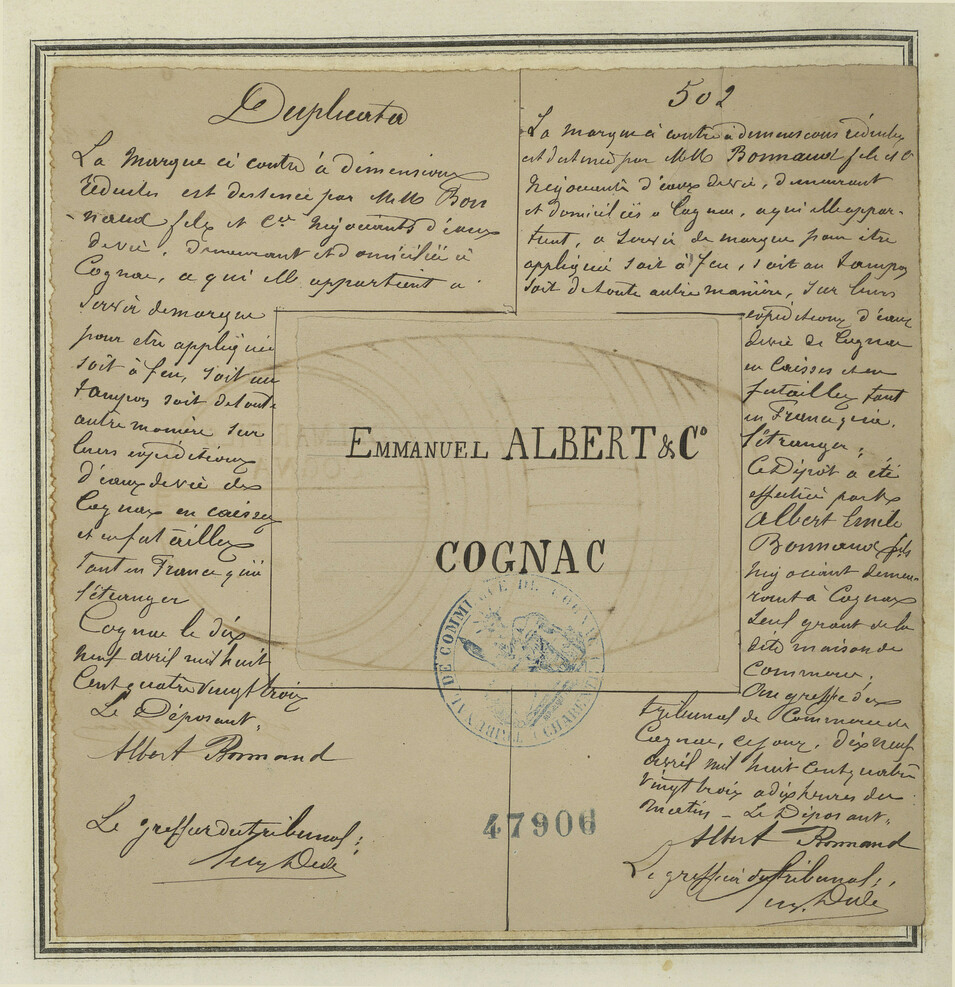 Duplicata
La marque ci contre à dimensions
réduites est destinée par MM Bon
-naud fils et Cie négociants d'eaux
devie, demeurant et domiciliés à
Cognac, a qui elle appartient a
servir demarque
pour etre appliquée
soit à feu, soit au
tampon soit detoute
autre manière sur
leurs expéditions
d'eaux devie de
Cognac en caisses
et enfutailles
tant en France qu'à
l'étranger
Cognac le dix
neuf avril mil huit
cent quatre vingt trois
Le Déposant,
Albert Bonnaud
Le greffier du tribunal;
502
La marque ci contre à dimensions réduites
est destinée par MM Bonnaud fils et Cie
négociants d'eaux devie, demeurant
et domiciliés a Cognac, a qui elle appar-
tient, a servir de marque pour être
appliquée soit à feu, soit au tampon
soit de toute autre manière, sur leurs
expéditions d'eaux
devie de Cognac
en caisses et en
futailles tant
en France qu'à
l'étranger;
Ce Dépôt a été
effectué par Mr
Albert Emile
Bonnaud fils
négociant demeu-
rant a Cognac
seul gérant de la
dite maison de
Commerce;
Au greffe du
tribunal de Commerce de
Cognac, ce jour, dix neuf
avril mil huit cent quatre
vingt trois a dix heures du
matin - Le Déposant,
Albert Bonnaud
Le greffier du tribunal;
EMMANUEL ALBERT & Co
COGNAC
TRIBUNAL DE COMMERCE DE COGNAC
CHARENTE
47906